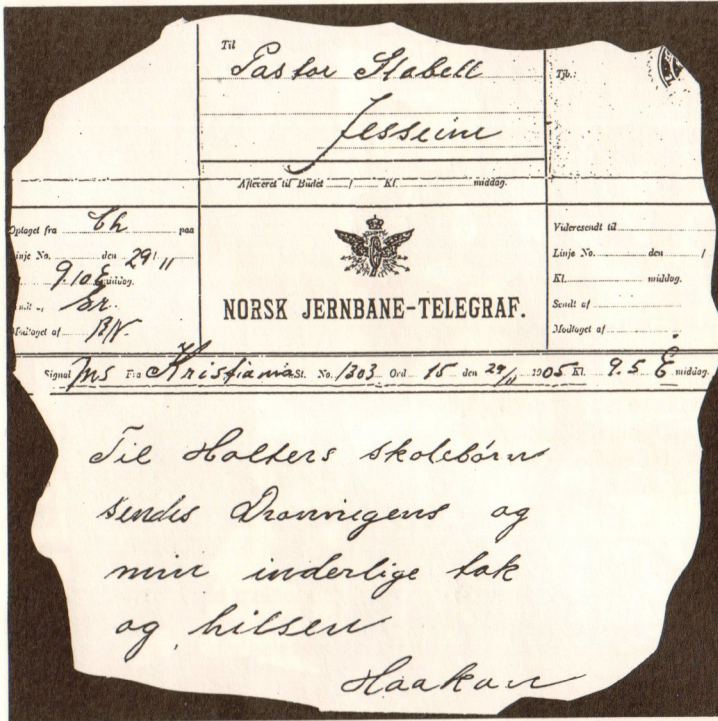 Til
Pastor Stabell
Jesseim
Tjb.:
Afleveret til Budet / Kl. middag.
Optaget fra Ch paa
Linje No. den 29/11
9.10 E middag.
Modtaget af
NORSK JERNBANE-TELEGRAF.
Videresendt til
Linje No. den /
Kl. middag.
Sendt af
Modtaget af
Signal Ms Fra Kristiania St. No. 1303 Ord 15 den 29/11 1905 Kl. 9.5 E middag.
Til Holters skolebørn
sendes Dronningens og
min inderlige tak
og hilsen
Haakon